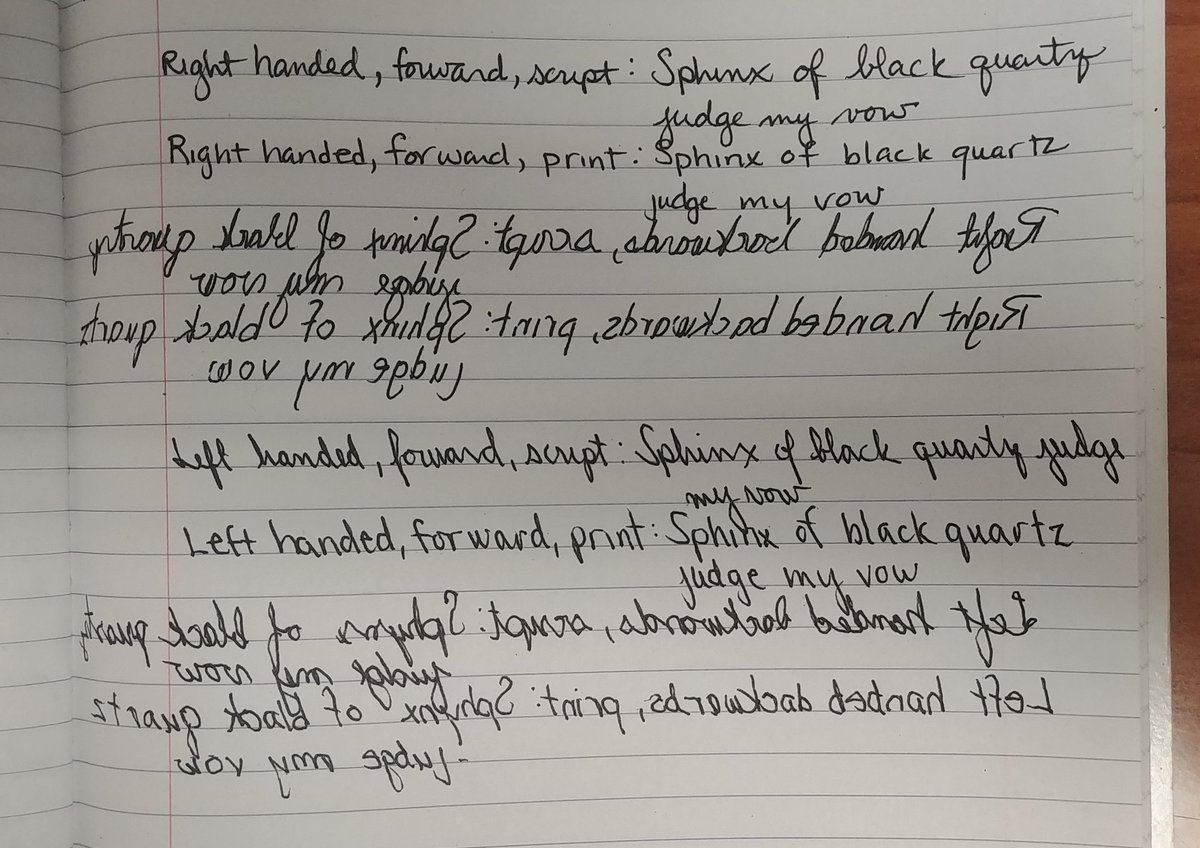 Right handed, forward, script: Sphinx of black quartz
judge my vow
Right handed, forward, print: Sphinx of black quartz
judge my vow
Right handed backwards, script: Sphinx of black quartz
judge my vow
Right handed backwards, print: Sphinx of black quartz
judge my vow
Left handed, forward, script: Sphinx of black quartz judge
my vow
Left handed, forward, print: Sphinx of black quartz
judge my vow
Left handed backwards, script: Sphinx of black quartz
judge my vow
Left handed backwards, print: Sphinx of black quartz
judge my vow